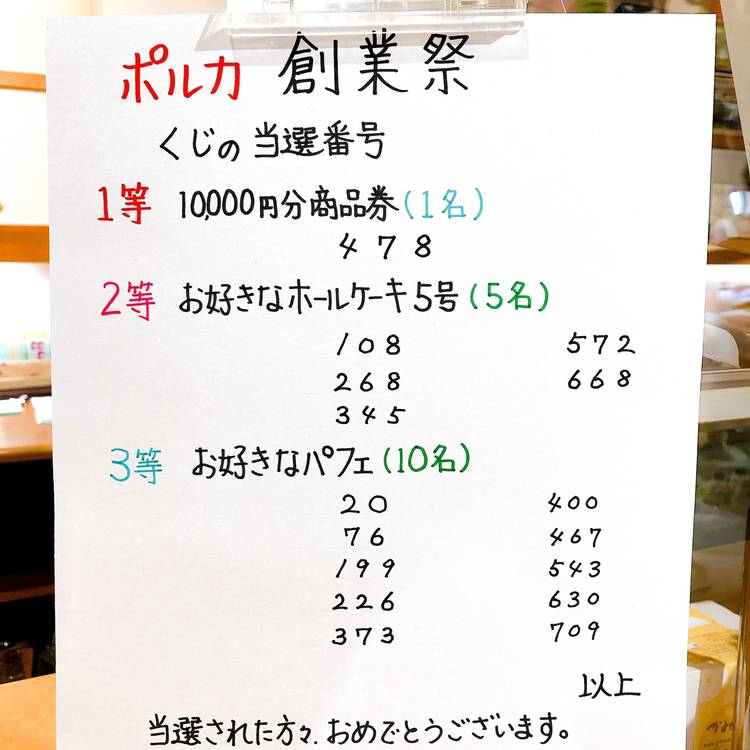 ポルカ 創業祭
くじの当選番号
1等 10,000円分商品券(1名)
478
2等 お好きなホールケーキ5号(5名)
108 572
268 668
345
3等 お好きなパフェ(10名)
20 400
76 467
199 543
226 630
373 709
以上
当選された方々、おめでとうございます。